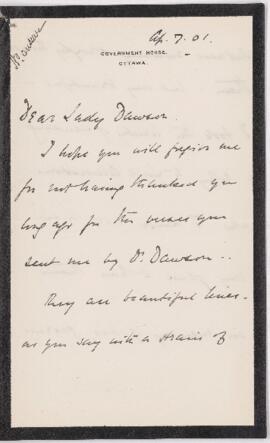 No answer
Ap. 7. 01.
GOVERNMENT HOUSE.
OTTAWA.
Dear Lady Dawson.
I hope you will forgive me
for not having thanked you
long ago for the verses you
sent me by Dr. Dawson -.
They are beautiful lines -
as you say with a strain of